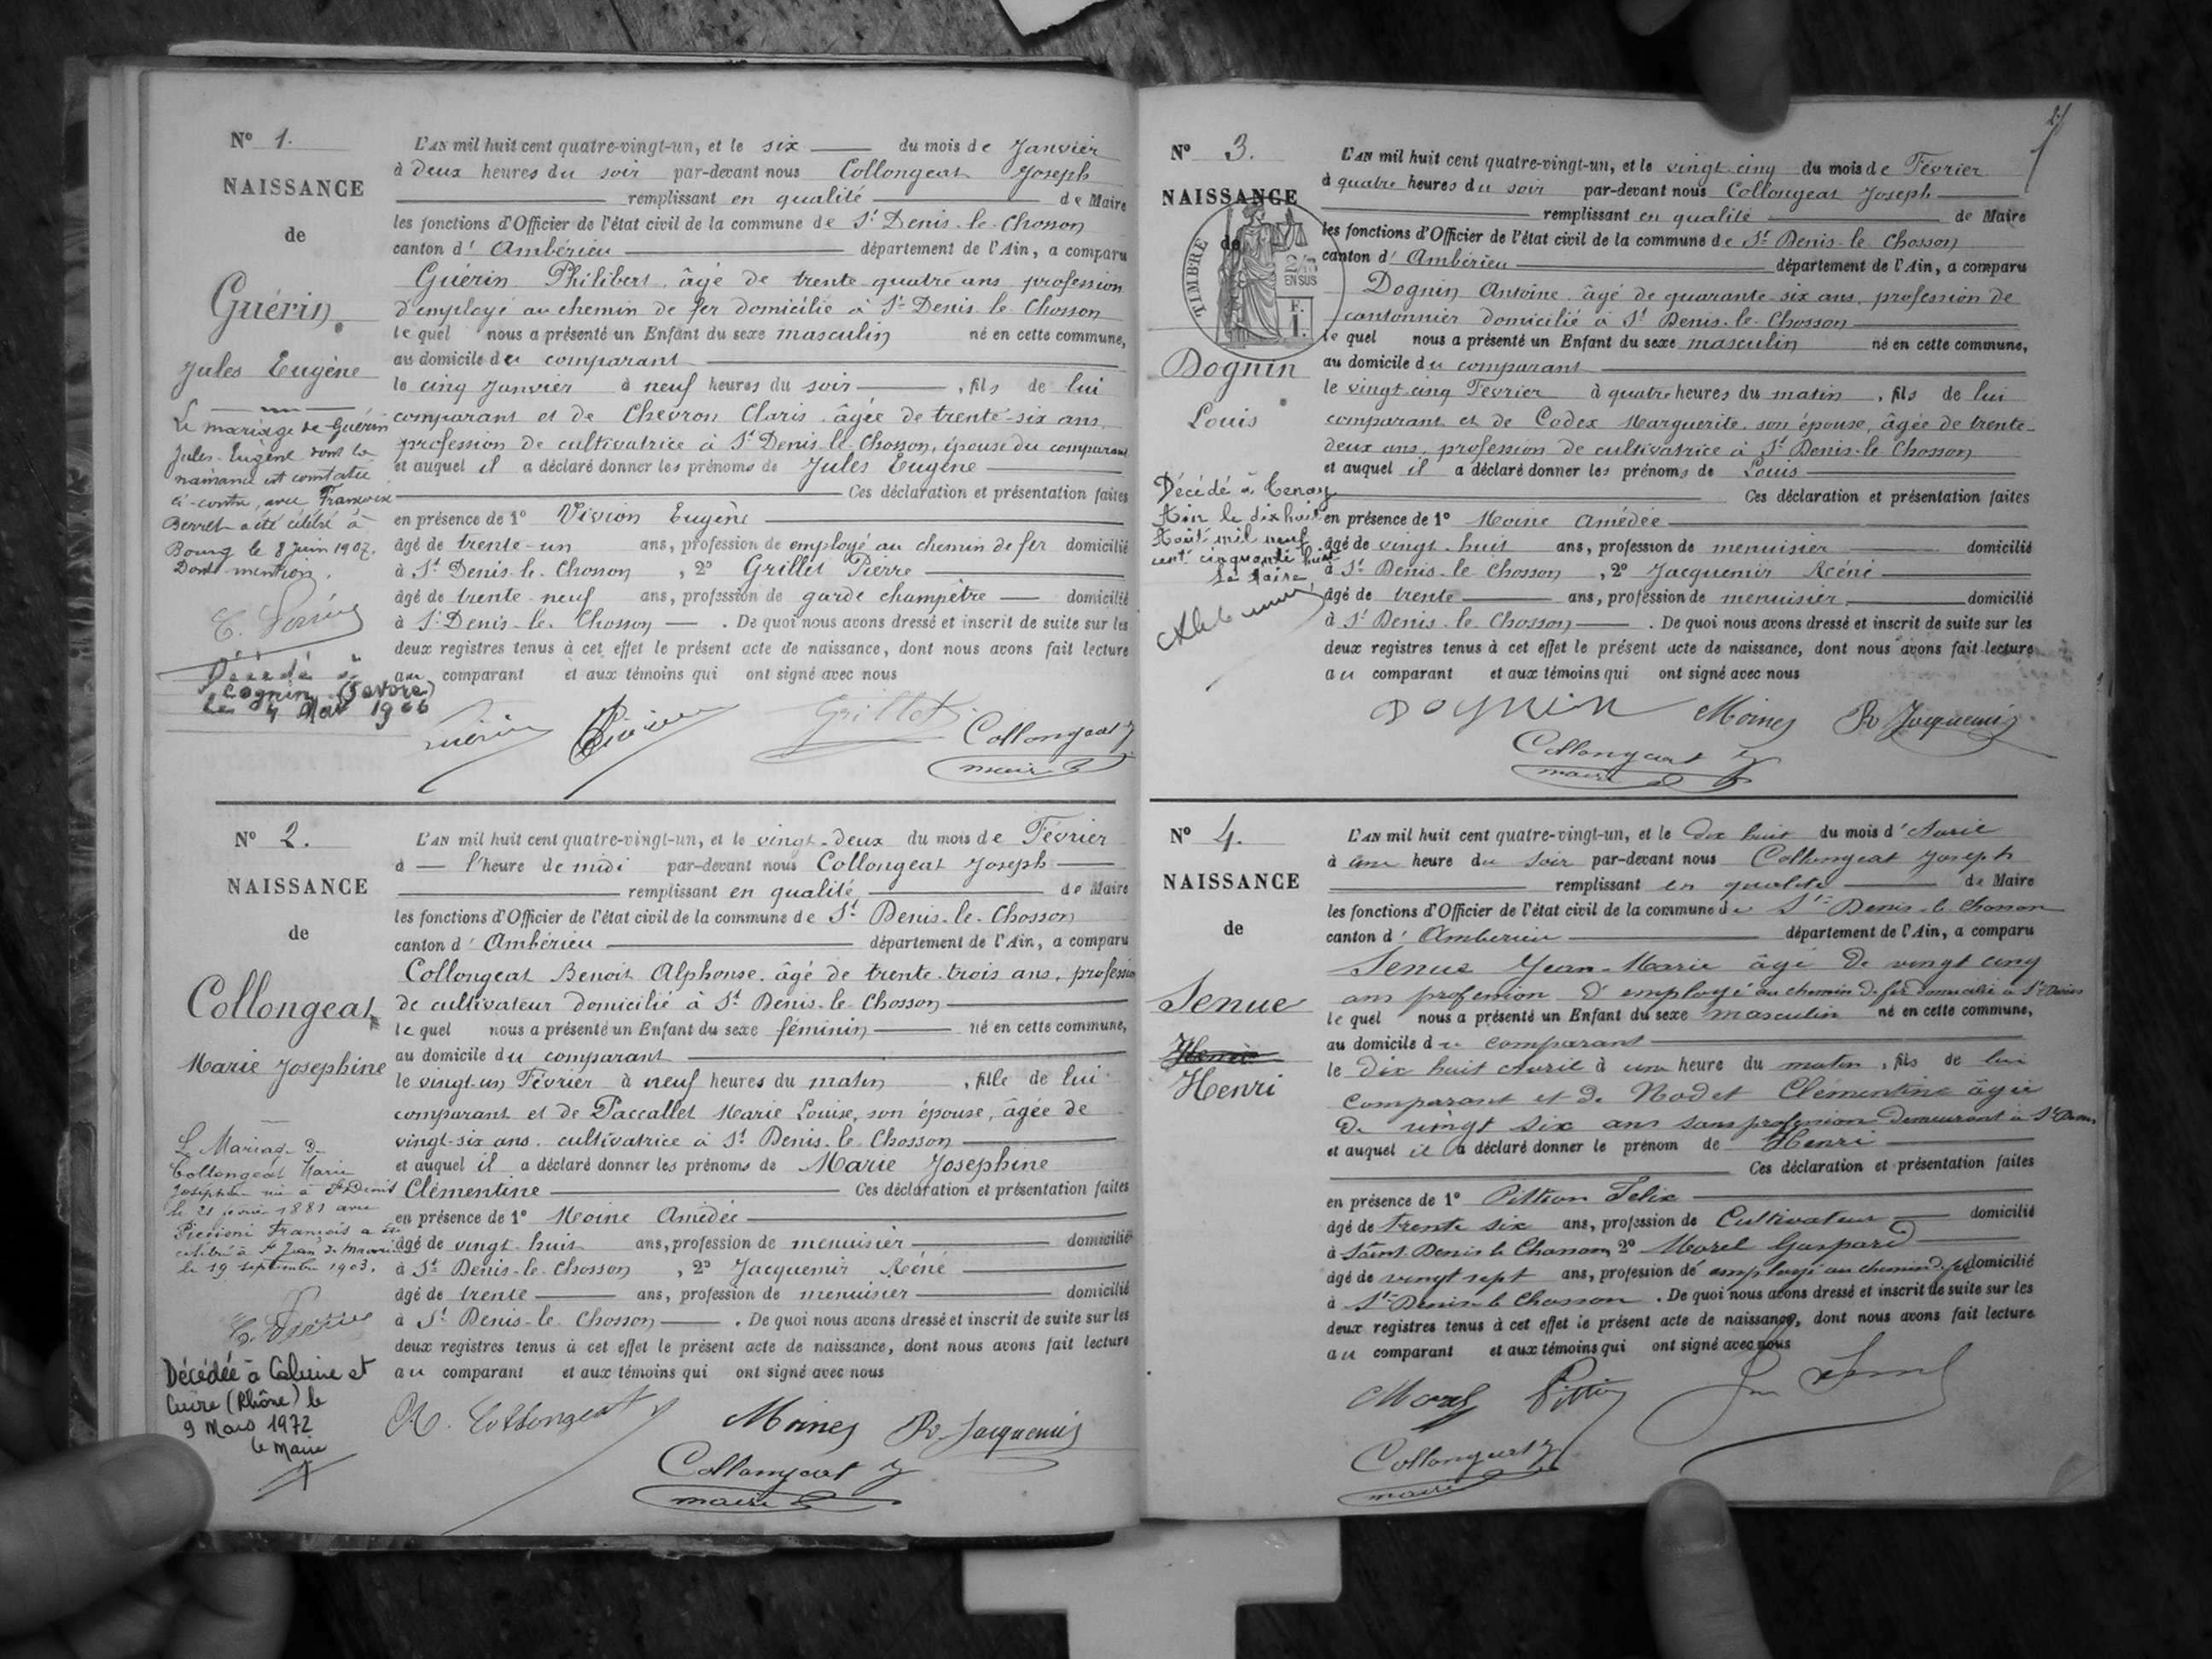 N° 1.
NAISSANCE
de
Guérin
Jules Eugène
Le mariage de Guérin
Jules-Eugène dont la
naissance est constatée
ci-contre, avec Françoise
Berret a été célébré à
Bourg le 8 Juin 1907.
Dont mention.
Décédé à
Cognin (Savoie)
Le 4 Mai 1966
L'AN mil huit cent quatre-vingt-un, et le six du mois de Janvier
à deux heures du soir par-devant nous Collongeat Joseph
remplissant en qualité de Maire
les fonctions d'Officier de l'état civil de la commune de St Denis-le-Chosson
canton d' Ambérieu département de l'Ain, a comparu
Guérin Philibert âgé de trente quatre ans profession
d'employé au chemin de fer domicilié à St Denis-le-Chosson
le quel nous a présenté un Enfant du sexe masculin né en cette commune,
au domicile du comparant
le cinq Janvier à neuf heures du soir, fils de lui
comparant et de Chevron Claris âgée de trente-six ans,
profession de cultivatrice à St Denis-le-Chosson, épouse du comparant
et auquel il a déclaré donner les prénoms de Jules Eugène
Ces déclaration et présentation faites
en présence de 1° Vivion Eugène
âgé de trente-un ans, profession de employé au chemin de fer domicilié
à St Denis-le-Chosson, 2° Grillet Pierre
âgé de trente neuf ans, profession de garde champêtre domicilié
à St Denis-le-Chosson. De quoi nous avons dressé et inscrit de suite sur les
deux registres tenus à cet effet le présent acte de naissance, dont nous avons fait lecture
au comparant et aux témoins qui ont signé avec nous
Guérin Grillet Collongeat J
maire
N° 2.
NAISSANCE
de
Collongeat
Marie Josephine
Le Mariage de
Collongeat Marie
Joséphine née à St Denis
le 21 février 1881 avec
Piccioni François a été
célébré à St Jean de Maurie
le 19 septembre 1903.
Décédée à Caluire et
Cuire (Rhône) le
9 Mars 1972
le Maire
L'AN mil huit cent quatre-vingt-un, et le vingt-deux du mois de Février
à l'heure de midi par-devant nous Collongeat Joseph
remplissant en qualité de Maire
les fonctions d'Officier de l'état civil de la commune de St Denis-le-Chosson
canton d' Ambérieu département de l'Ain, a comparu
Collongeat Benoit Alphonse âgé de trente-trois ans, profession
de cultivateur domicilié à St Denis-le-Chosson
le quel nous a présenté un Enfant du sexe féminin né en cette commune,
au domicile du comparant
le vingt-un Février à neuf heures du matin, fille de lui
comparant et de Paccallet Marie Louise, son épouse, âgée de
vingt-six ans cultivatrice à St Denis-le-Chosson
et auquel il a déclaré donner les prénoms de Marie Josephine
Clémentine Ces déclaration et présentation faites
en présence de 1° Moine Amédée
âgé de vingt-huit ans, profession de menuisier domicilié
à St Denis-le-Chosson, 2° Jacquemir Réné
âgé de trente ans, profession de menuisier domicilié
à St Denis-le-Chosson. De quoi nous avons dressé et inscrit de suite sur les
deux registres tenus à cet effet le présent acte de naissance, dont nous avons fait lecture
au comparant et aux témoins qui ont signé avec nous
Collongeat Moine Collongeat J
maire
N° 3.
NAISSANCE
de
TIMBRE
2/10
EN SUS
F.
1.
Dognin
Louis
Décédé à Tenay
Ain le dix huit
Août mil neuf
cent cinquante huit
Le Maire
L'AN mil huit cent quatre-vingt-un, et le vingt-cinq du mois de Février
à quatre heures du soir par-devant nous Collongeat Joseph
remplissant en qualité de Maire
les fonctions d'Officier de l'état civil de la commune de St Denis-le-Chosson
canton d' Ambérieu département de l'Ain, a comparu
Dognin Antoine âgé de quarante-six ans, profession de
cantonnier domicilié à St Denis-le-Chosson
le quel nous a présenté un Enfant du sexe masculin né en cette commune,
au domicile du comparant
le vingt-cinq Février à quatre heures du matin, fils de lui
comparant et de Codex Marguerite, son épouse, âgée de trente-
deux ans, profession de cultivatrice à St Denis-le-Chosson
et auquel il a déclaré donner les prénoms de Louis
Ces déclaration et présentation faites
en présence de 1° Moine Amédée
âgé de vingt-huit ans, profession de menuisier domicilié
à St Denis-le-Chosson, 2° Jacquemir Réné
âgé de trente ans, profession de menuisier domicilié
à St Denis-le-Chosson. De quoi nous avons dressé et inscrit de suite sur les
deux registres tenus à cet effet le présent acte de naissance, dont nous avons fait lecture
au comparant et aux témoins qui ont signé avec nous
Dognin Moine Collongeat J
maire
N° 4.
NAISSANCE
de
Senue
Henri
L'AN mil huit cent quatre-vingt-un, et le dix huit du mois d'Avril
à une heure du soir par-devant nous Collongeat Joseph
remplissant en qualité de Maire
les fonctions d'Officier de l'état civil de la commune de St Denis-le-Chosson
canton d' Ambérieu département de l'Ain, a comparu
Senue Jean-Marie âgé de vingt cinq
ans profession d'employé au chemin de fer domicilié à St Denis
le quel nous a présenté un Enfant du sexe masculin né en cette commune,
au domicile du comparant
le dix huit Avril à une heure du matin, fils de lui
comparant et de Nodet Clémentine âgée
de vingt six ans sans profession demeurant à St Denis
et auquel il a déclaré donner le prénom de Henri
Ces déclaration et présentation faites
en présence de 1° Pittion Felix
âgé de trente six ans, profession de Cultivateur domicilié
à Saint Denis le Chosson, 2° Morel Gaspard
âgé de vingt sept ans, profession de employé au chemin de fer domicilié
à St Denis le Chosson. De quoi nous avons dressé et inscrit de suite sur les
deux registres tenus à cet effet le présent acte de naissance, dont nous avons fait lecture
au comparant et aux témoins qui ont signé avec nous
Morel Pittion
Collongeat J
maire